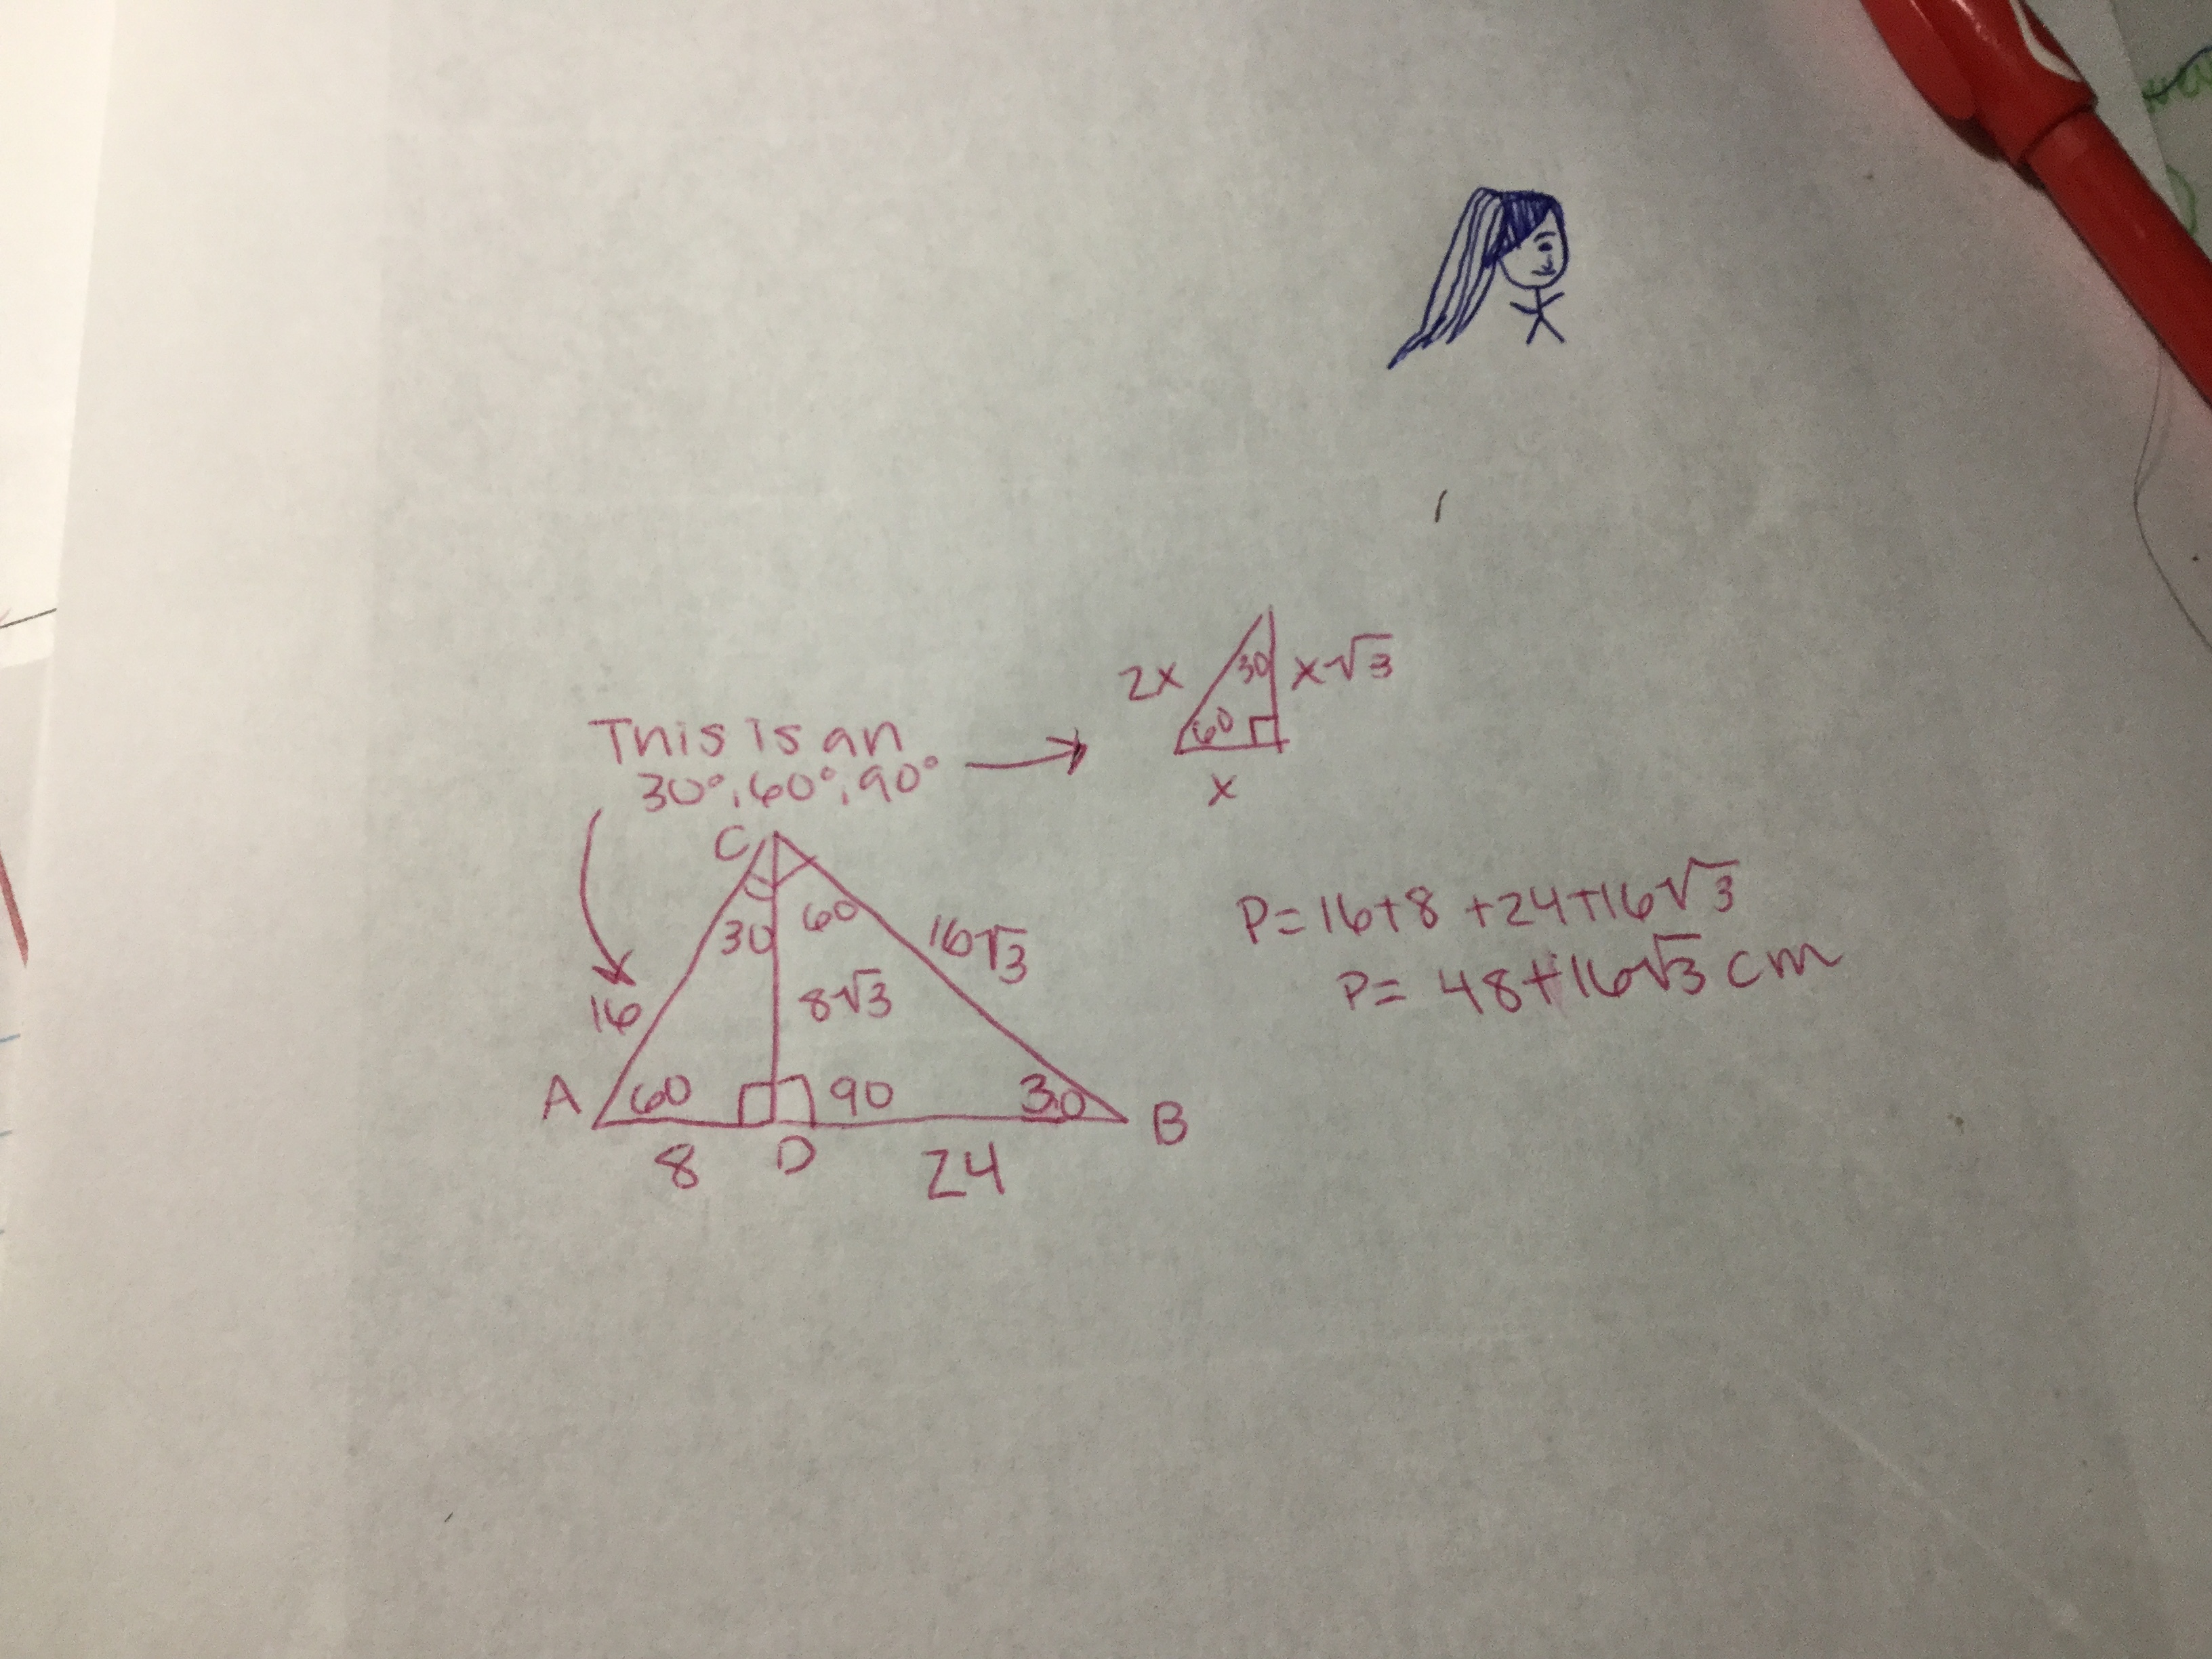 2x
30
x√3
60
x
This is an
30°, 60°, 90°
C
30
60
16√3
16
8√3
A
60
90
30
B
8
D
24
P=16+8+24+16√3
P= 48+16√3 cm